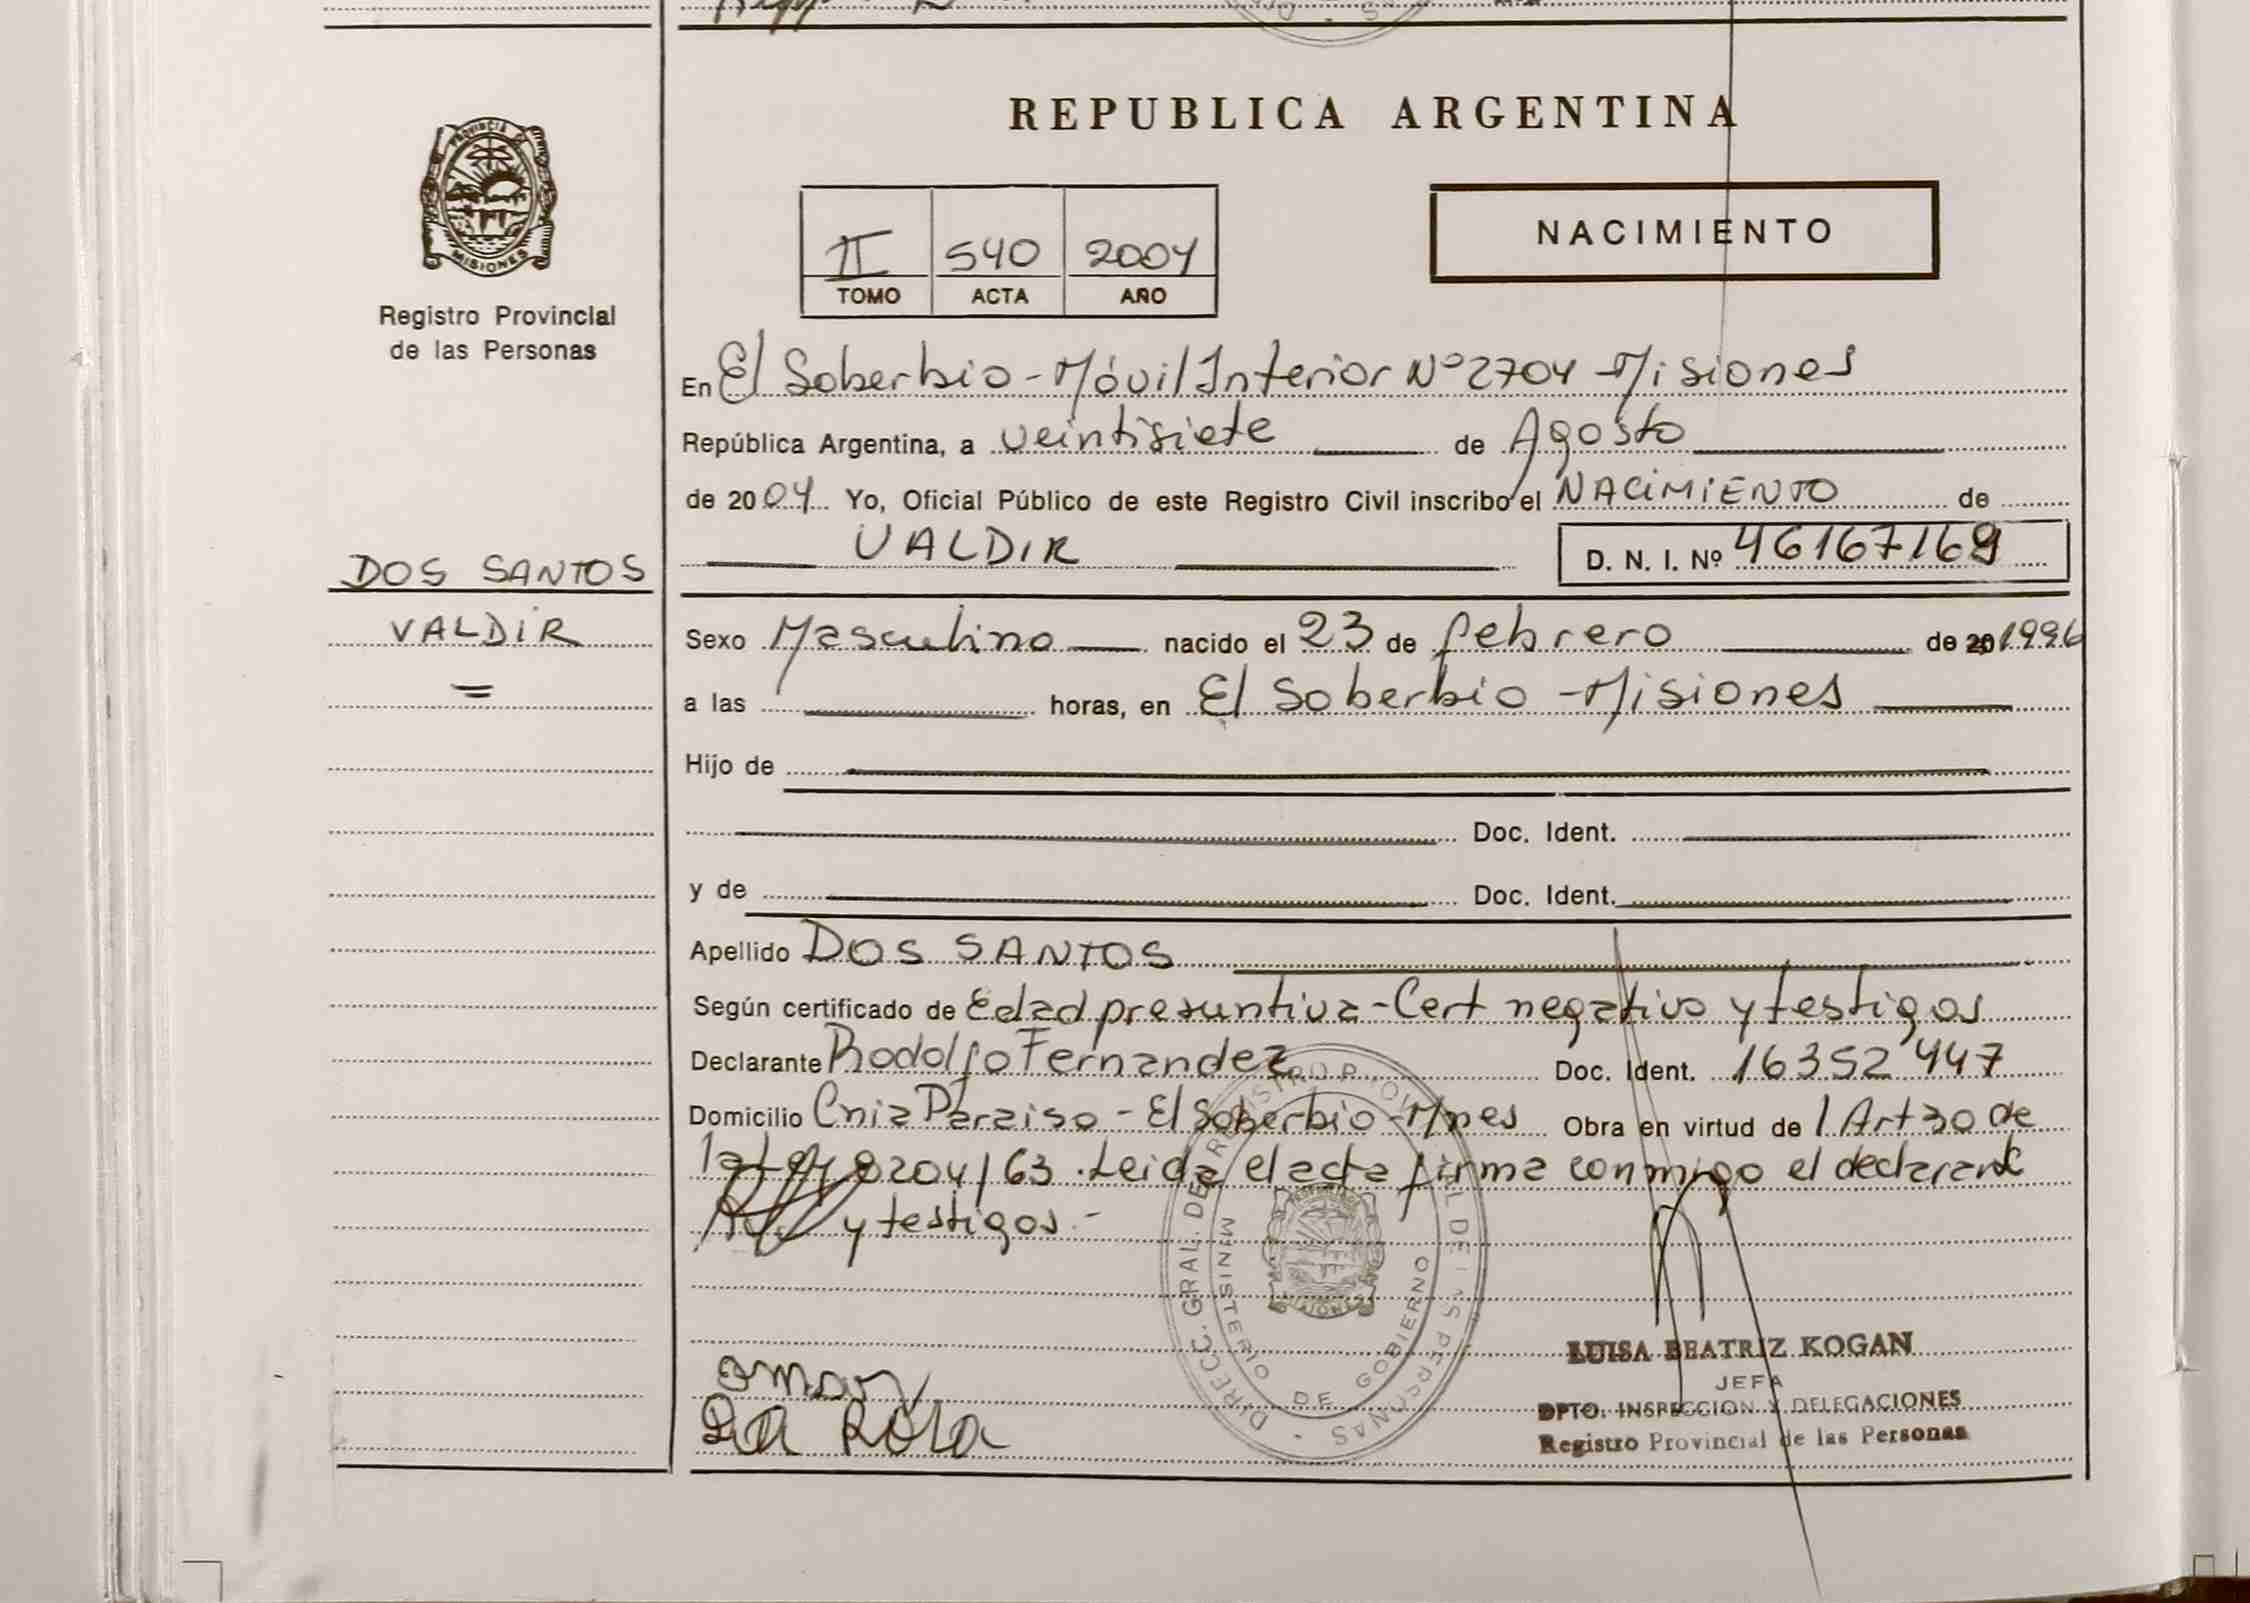 REPUBLICA ARGENTINA
PROVINCIA DE
MISIONES
Registro Provincial
de las Personas
II 540 2004
TOMO ACTA AÑO
NACIMIENTO
En El Soberbio - Móvil Interior Nº 2704 - Misiones
República Argentina, a veintisiete de Agosto
de 2004 Yo, Oficial Público de este Registro Civil inscribo el NACIMIENTO de
VALDIR D. N. I. Nº 46167169
DOS SANTOS
VALDIR
Sexo Masculino nacido el 23 de febrero de 20 1996
a las horas, en El Soberbio - Misiones
Hijo de
Doc. Ident.
y de Doc. Ident.
Apellido DOS SANTOS
Según certificado de Edad presuntiva - Cert negativo y testigos
Declarante Rodolfo Fernandez Doc. Ident. 16352447
Domicilio Cnia Paraiso - El Soberbio - Mnes Obra en virtud de l Art 30 de
la Ley 8204/63. Leida el acta firma conmigo el declarante
y testigos.-
DIRECC. GRAL. DE REGISTRO PROVINCIAL DE LAS PERSONAS -
MINISTERIO DE GOBIERNO
LUISA BEATRIZ KOGAN
JEFA
DPTO. INSPECCION Y DELEGACIONES
Registro Provincial de las Personas